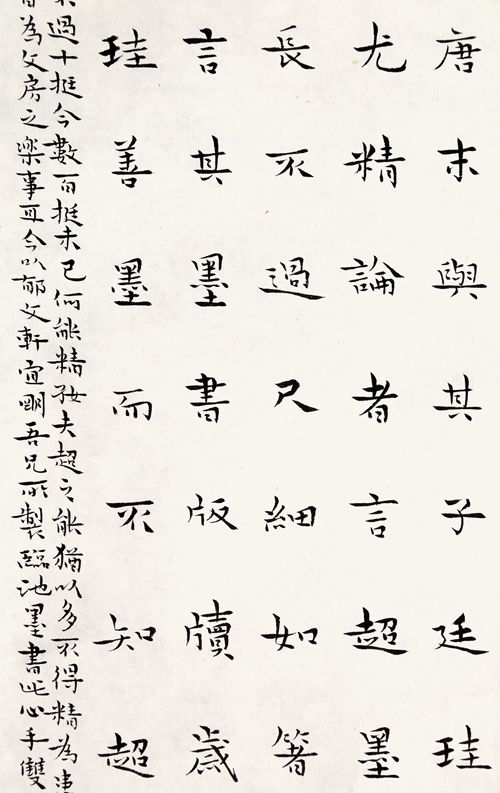 唐末與其子廷珪
尤精論者言超墨
長不過尺細如箸
言其墨書版牘歲
珪善墨而不知超
過十挺今數百挺未已何能精好夫超之能猶以多不得精為
為文房之樂事耳今以郁文軒宣明吾兄所製臨池墨書此心手雙